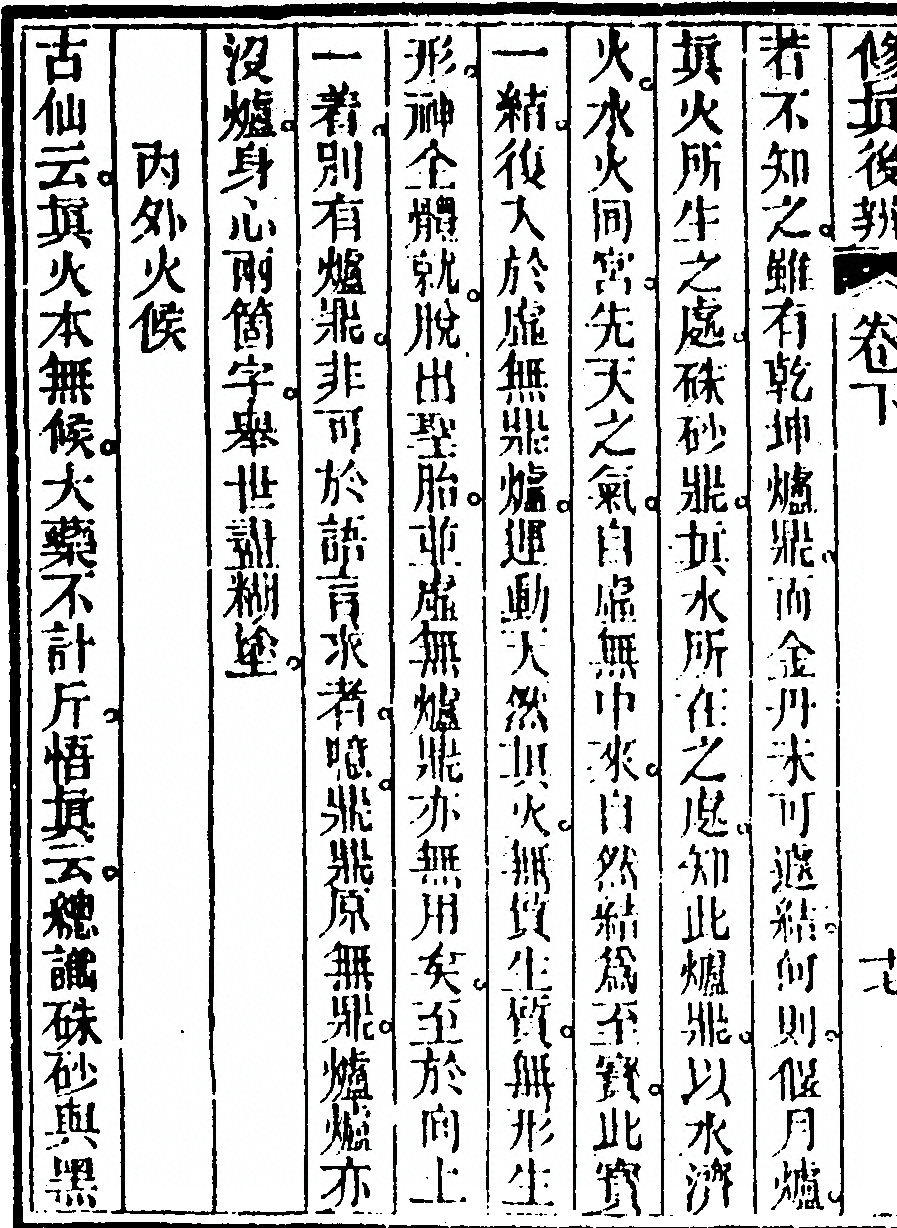 修真後辨 卷下 十七
若不知之雖有乾坤爐鼎而金丹未可遽結何則偃月爐
眞火所生之處硃砂鼎眞水所在之處知此爐鼎以水濟
火水火同宮先天之氣自虛無中來自然結爲至寶此寶
一結復入於虛無鼎爐運動天然眞火無質生質無形生
形神全體就脫出聖胎並虛無爐鼎亦無用矣至於向上
一著別有爐鼎非可於語言求者噫鼎鼎原無鼎爐爐亦
沒爐身心兩箇字舉世盡糊塗
內外火候
古仙云眞火本無候大藥不計斤悟眞云縱識硃砂與黑